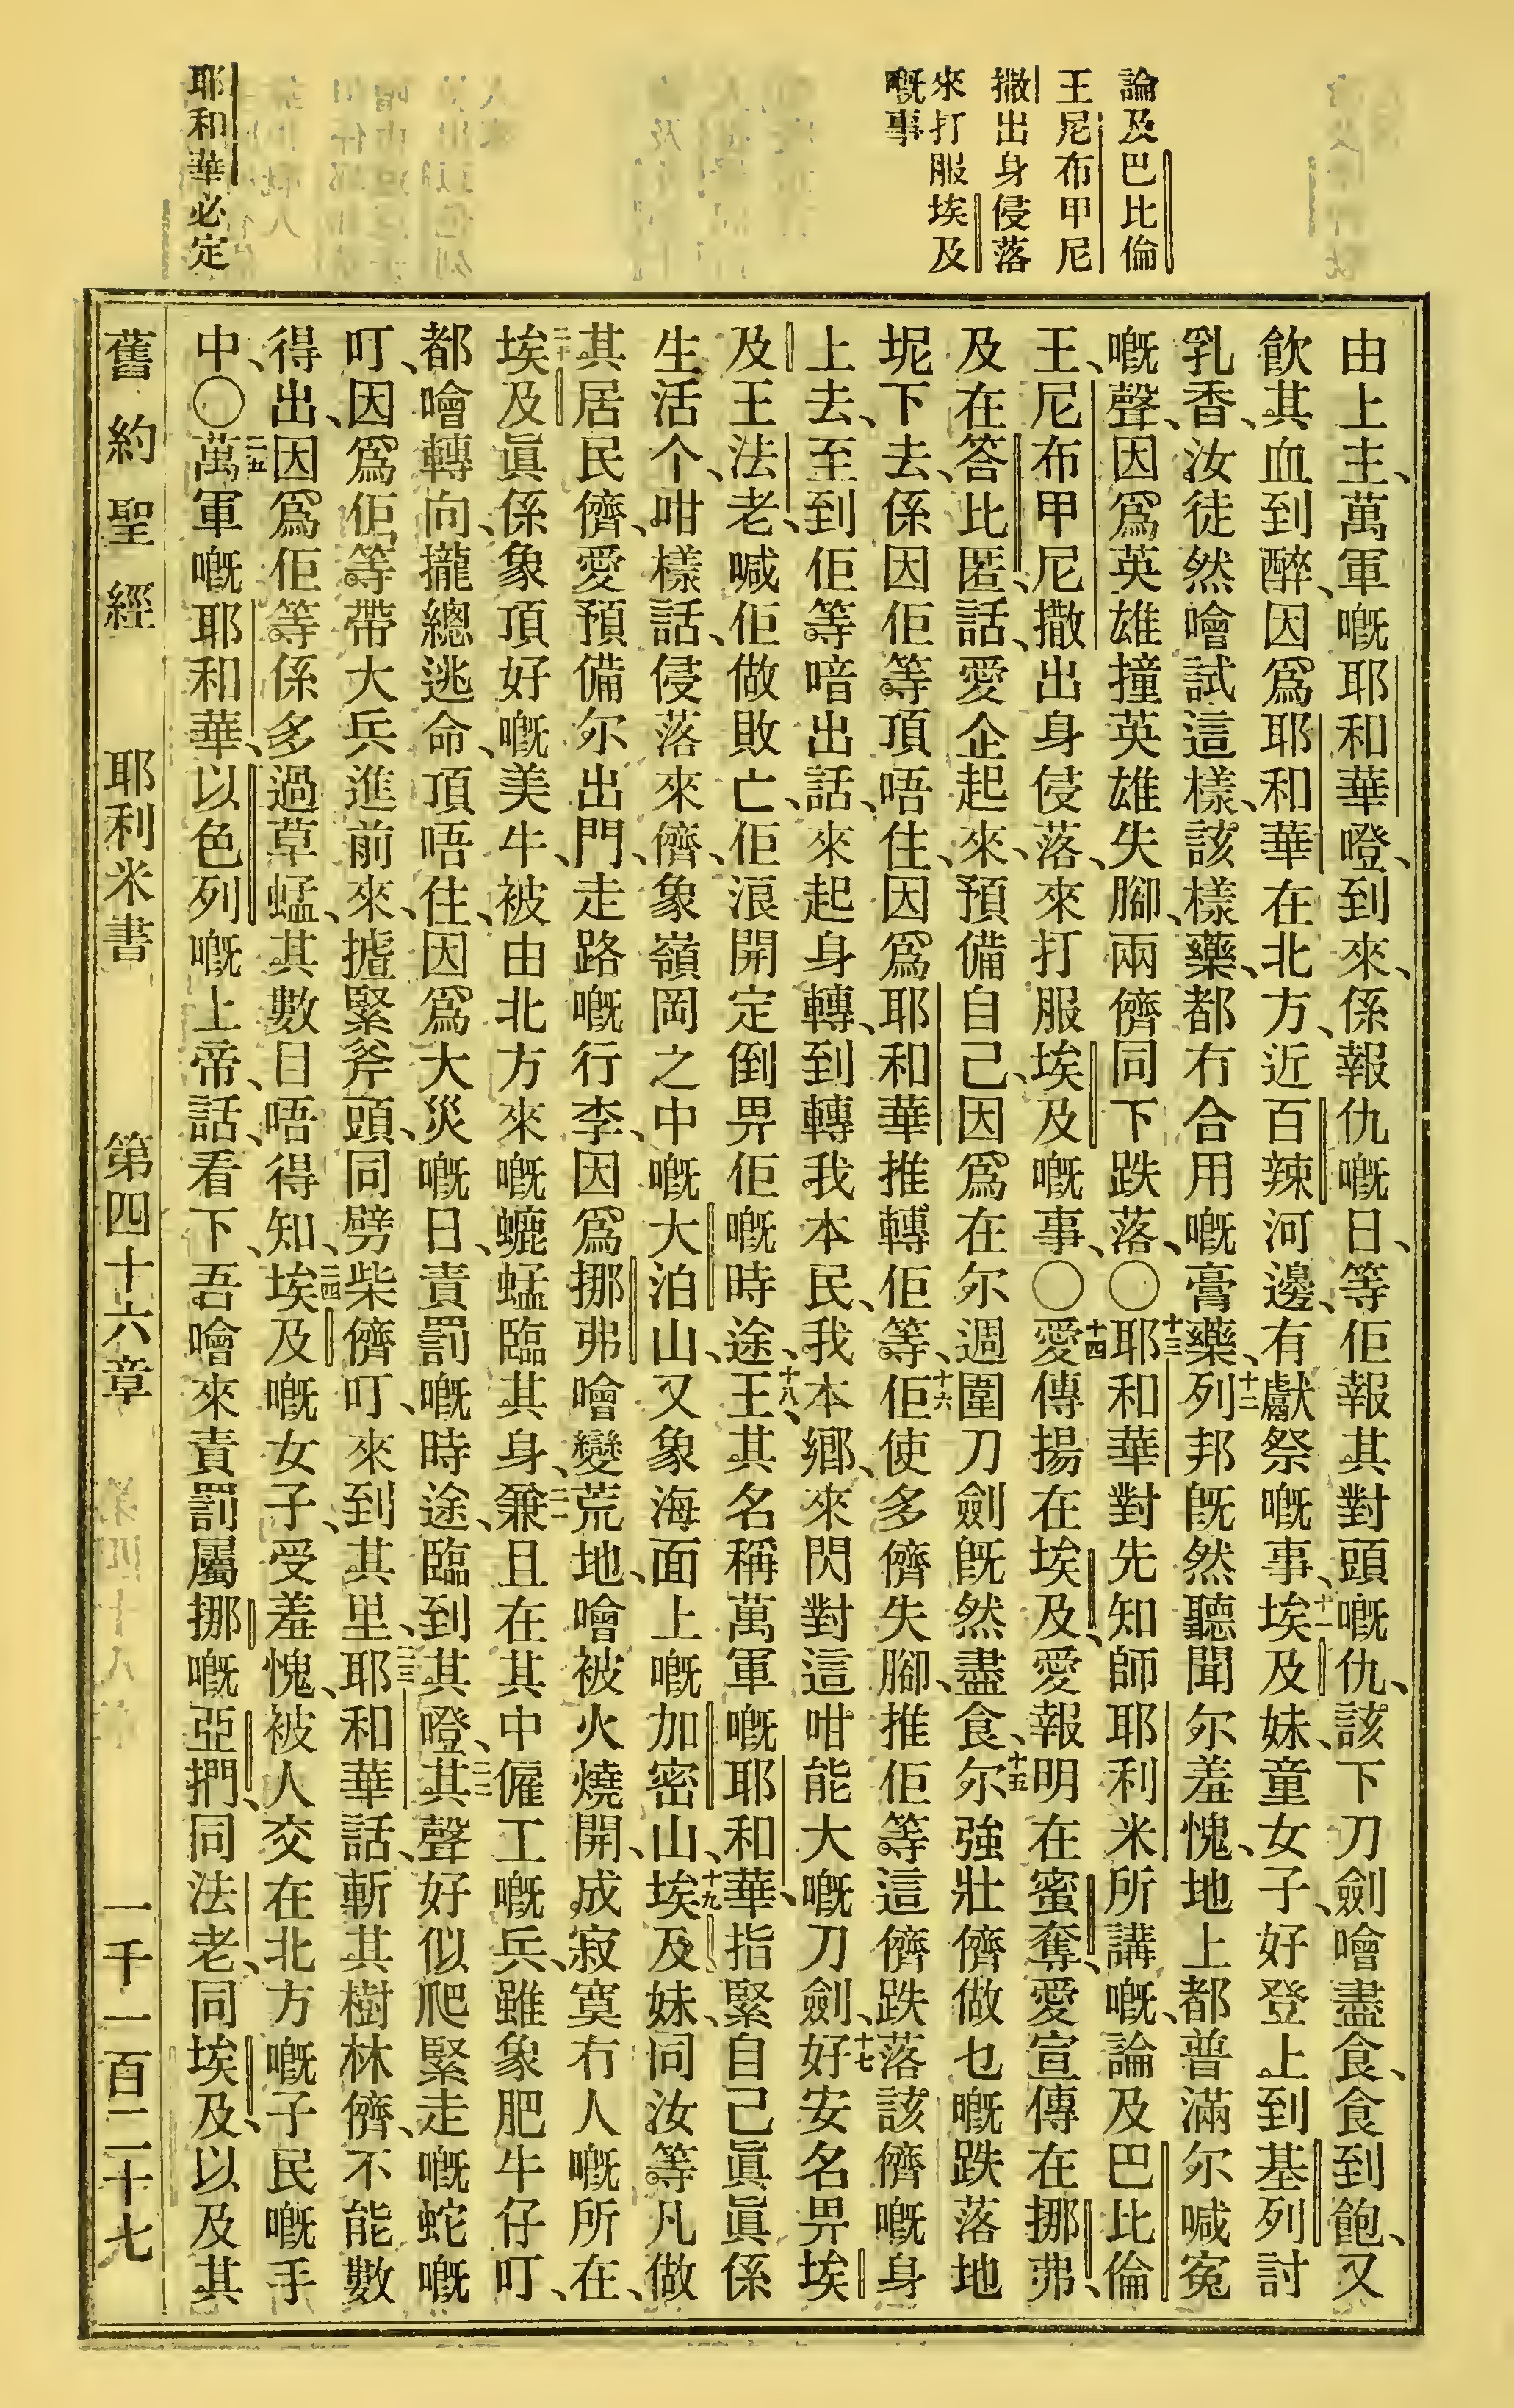 論及巴比倫
王尼布甲尼
撒出身侵落
來打服埃及
嘅事
耶和華必定
由上主、萬軍嘅耶和華噔、到來、係報仇嘅日、等佢報其對頭嘅仇、該下刀劍噲盡食、食到飽、又
飲其血到醉、因爲耶和華在北方、近百辣河邊、有獻祭嘅事、十一埃及妹、童女子、好登上到基列討
乳香、汝徒然噲試這樣、該樣藥、都冇合用嘅膏藥、十二列邦旣然聽聞尔羞愧、地上都普滿尔喊寃
嘅聲、因爲英雄撞英雄失腳、兩儕同下跌落、〇十三耶和華對先知師耶利米所講嘅、論及巴比倫
王、尼布甲尼撒出身侵落、來打服埃及嘅事、〇十四愛傳揚在埃及、愛報明在蜜奪、愛宣傳在挪弗、
及在答比匿、話、愛企起來、預備自己、因爲在尔週圍刀劍旣然盡食、十五尔強壯儕做乜嘅跌落地
坭下去、係因佢等頂唔住、因爲耶和華推轉佢等、十六佢使多儕失腳、推佢等這儕跌落該儕嘅身
上去、至到佢等喑出話、來起身轉、到轉我本民、我本鄉、來閃對這咁能大嘅刀劍、十七好安名畀埃
及王法老、喊佢做敗亡、佢浪開定倒畀佢嘅時途、十八王其名稱萬軍嘅耶和華、指緊自己眞眞係
生活个、咁樣話、侵落來儕、象嶺岡之中嘅大泊山、又象海面上嘅加密山、十九埃及妹、同汝等凡做
其居民儕、愛預備尔出門、走路嘅行李、因爲挪弗噲變荒地、噲被火燒開、成寂寞冇人嘅所在、
二十埃及眞係象頂好嘅美牛、被由北方來嘅蟅蜢臨其身、二一兼且在其中僱工嘅兵、雖象肥牛仔叮、
都噲轉向、攏總逃命、頂唔住、因爲大災嘅日、責罰嘅時途、臨到其噔、二二其聲好似爬緊走嘅蛇嘅
叮、因爲佢等帶大兵進前來、攄緊斧頭、同劈柴儕叮、來到其里、二三耶和華話、斬其樹林儕、不能數
得出、因爲佢等係多過草蜢、其數目唔得知、二四埃及嘅女子、受羞愧、被人交在北方嘅子民嘅手
中、〇二五萬軍嘅耶和華、以色列嘅上帝、話、看下、吾噲來責罰屬挪嘅亞捫、同法老、同埃及、以及其
舊約聖經 耶利米書 第四十六章 一千一百二十七